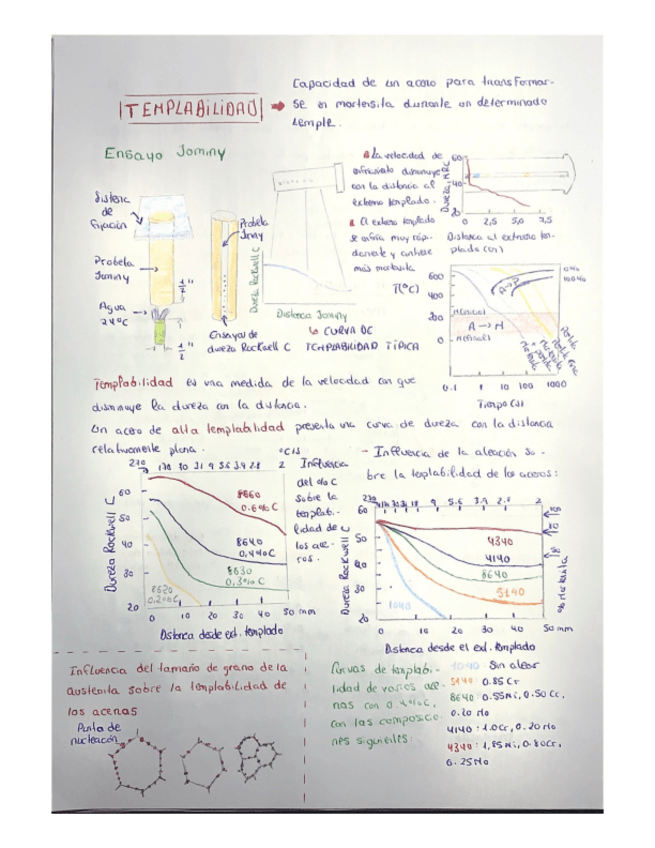 TEMPLABILIDAD
Capacidad de un acero para transformar-
se en martensita durante un determinado
temple.
Ensayo Jominy
Sistema
de
fijación
Probeta
Jominy
Agua
24ºC
1"
1/2"
Probeta
Jminy
Ensayos de
dureza Rockwell C
Dureza Rockwell C
Distancia Jominy
CURVA DE
TEMPLABILIDAD TÍPICA
La velocidad de
enfriamiento disminuye
con la distancia al
extremo templado.
El extremo templado
se enfría muy rápi-
damente y contiene
más martensita
Dureza, HRC
60
40
20
0 2,5 5,0 7,5
Distancia al extremo tem-
plado (cm)
T(ºC)
600
400
200
0
A→P
M(inicio)
A→M
M(final)
0.1 1 10 100 1000
Tiempo (s)
Templabilidad es una medida de la velocidad con que
disminuye la dureza con la distancia.
Un acero de alta templabilidad presenta una curva de dureza con la distancia
relativamente plana.
ºC/s
270 170 70 31 9 5.6 3.9 2.8 2
Dureza Rockwell C
60
50
40
30
20
8660
0.6%C
8640
0,4%C
8630
0,3%C
8620
0,20%C
0 10 20 30 40 50 mm
Distancia desde ext. templado
Influencia
del %C
sobre la
templabi-
lidad de
los ace-
ros.
- Influencia de la aleación so-
bre la templabilidad de los aceros:
9 5.6 3.9 2.8 2
Dureza Rockwell C
60
50
40
30
20
4340
4140
8640
5140
1040
% Martensita
0 10 20 30 40 50 mm
Distancia desde el ext. templado
Influencia del tamaño de grano de la
austenita sobre la templabilidad de
los aceros
Punto de
nucleación
Curvas de templabi-
lidad de varios ace-
ros con 0.4%C,
con las composicio
nes siguientes:
1040: Sin alear
5140: 0.85 Cr
8640: 0.55Ni, 0.50 Cr,
0.20 Mo
4140: 1.0Cr, 0.20 Mo
4340: 1,85Ni, 0.80Cr,
0.25Mo